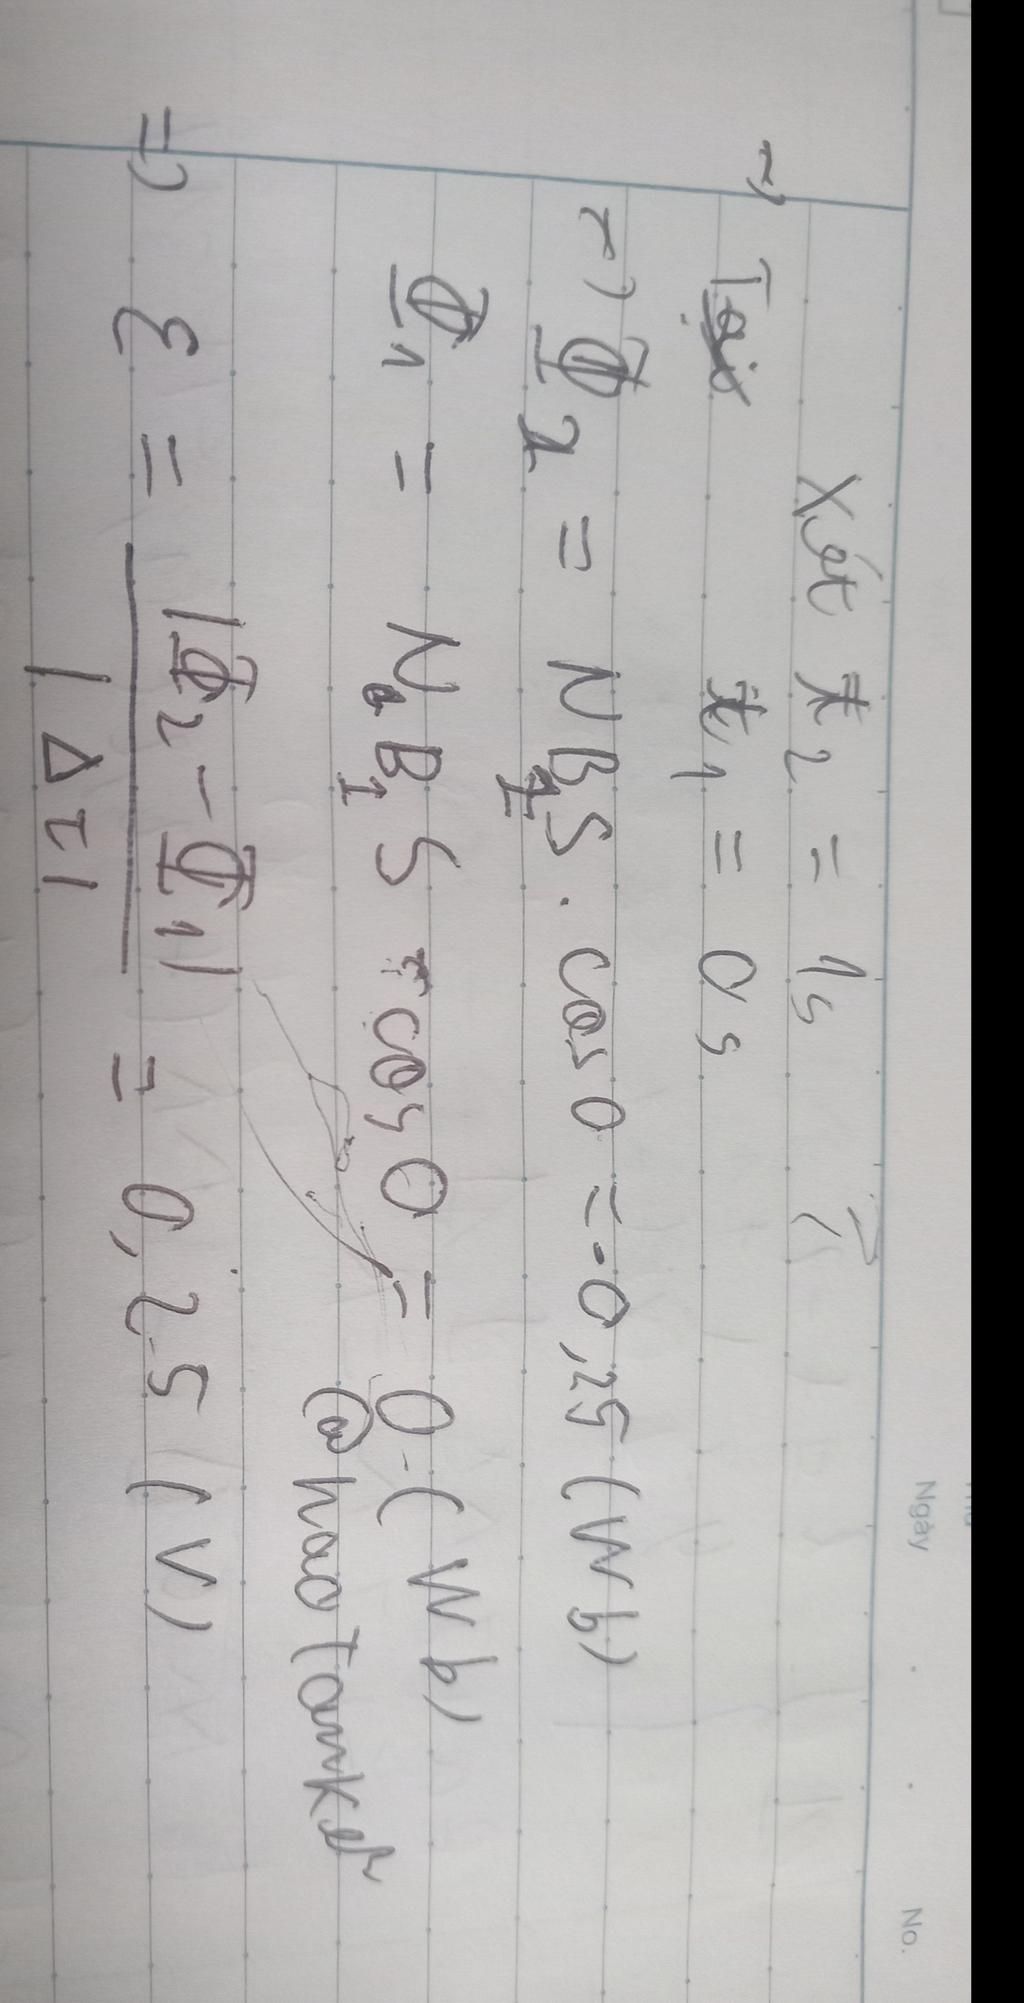 Ngày
No.
Xét t2 = 1s
t1 = 0s
=> Φ2 = NB2S.cos0 = -0,25 (Wb)
Φ1 = NB1S cos0 = 0 (Wb)
@haotanker
=> ε = |Φ2 - Φ1| / |Δt| = 0,25 (V)